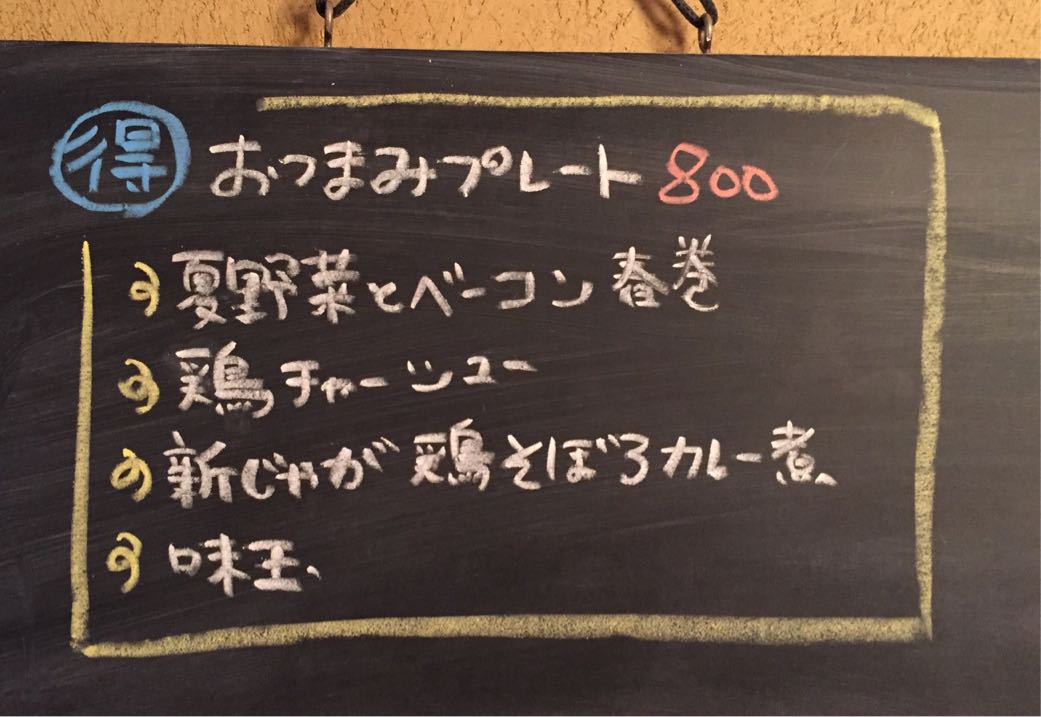 得 おつまみプレート 800
夏野菜とベーコン春巻
鶏チャーシュー
新じゃが鶏そぼろカレー煮
味玉